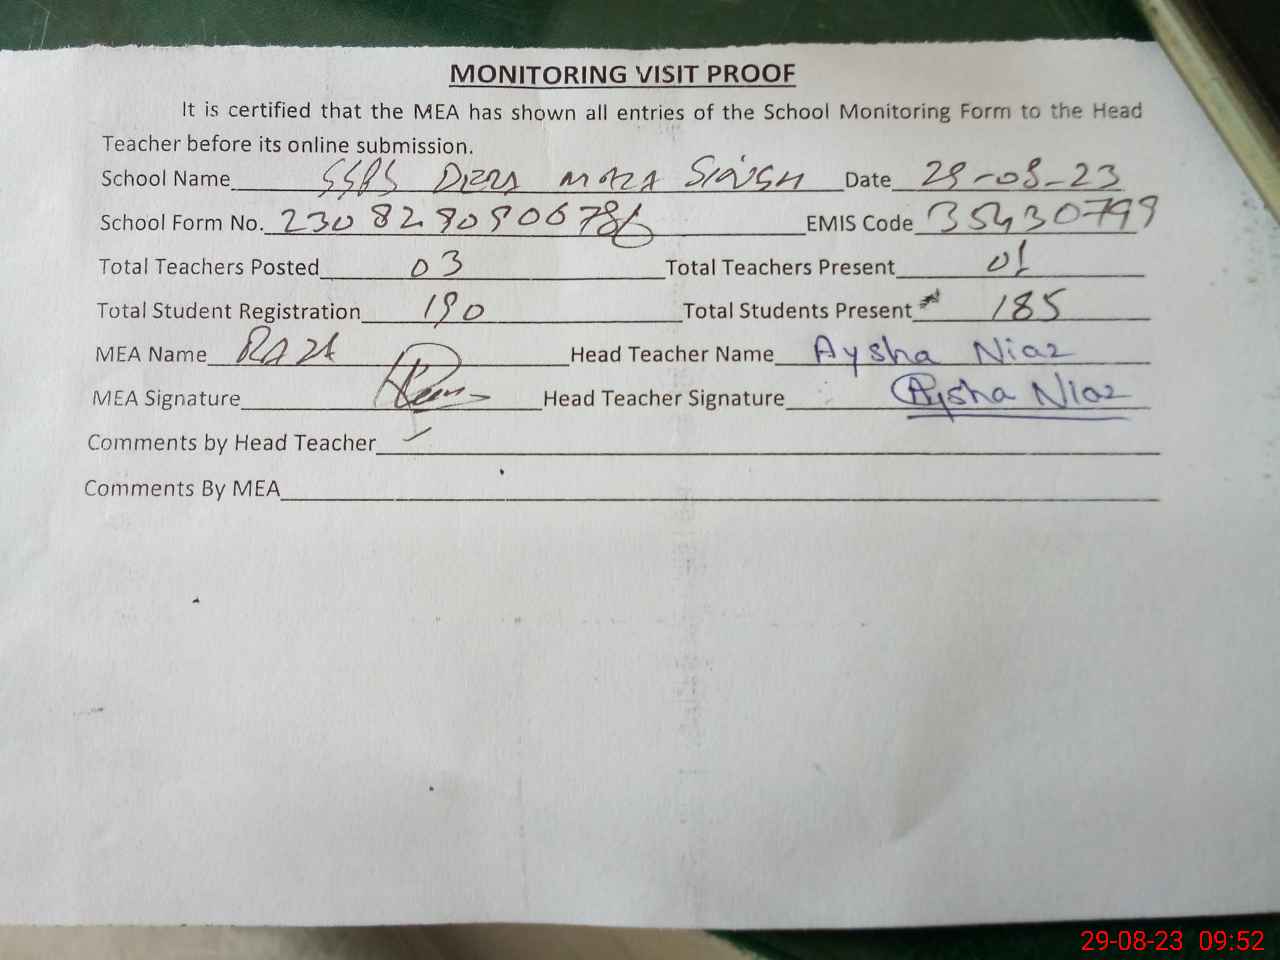 MONITORING VISIT PROOF
It is certified that the MEA has shown all entries of the School Monitoring Form to the Head
Teacher before its online submission.
School Name SSBS DERA MOZA SINGH Date 29-08-23
School Form No. 2308290906786 EMIS Code 35430799
Total Teachers Posted 03 Total Teachers Present 01
Total Student Registration 190 Total Students Present 185
MEA Name RAZA Head Teacher Name Aysha Niaz
MEA Signature Head Teacher Signature Aysha Niaz
Comments by Head Teacher
Comments By MEA
29-08-23 09:52